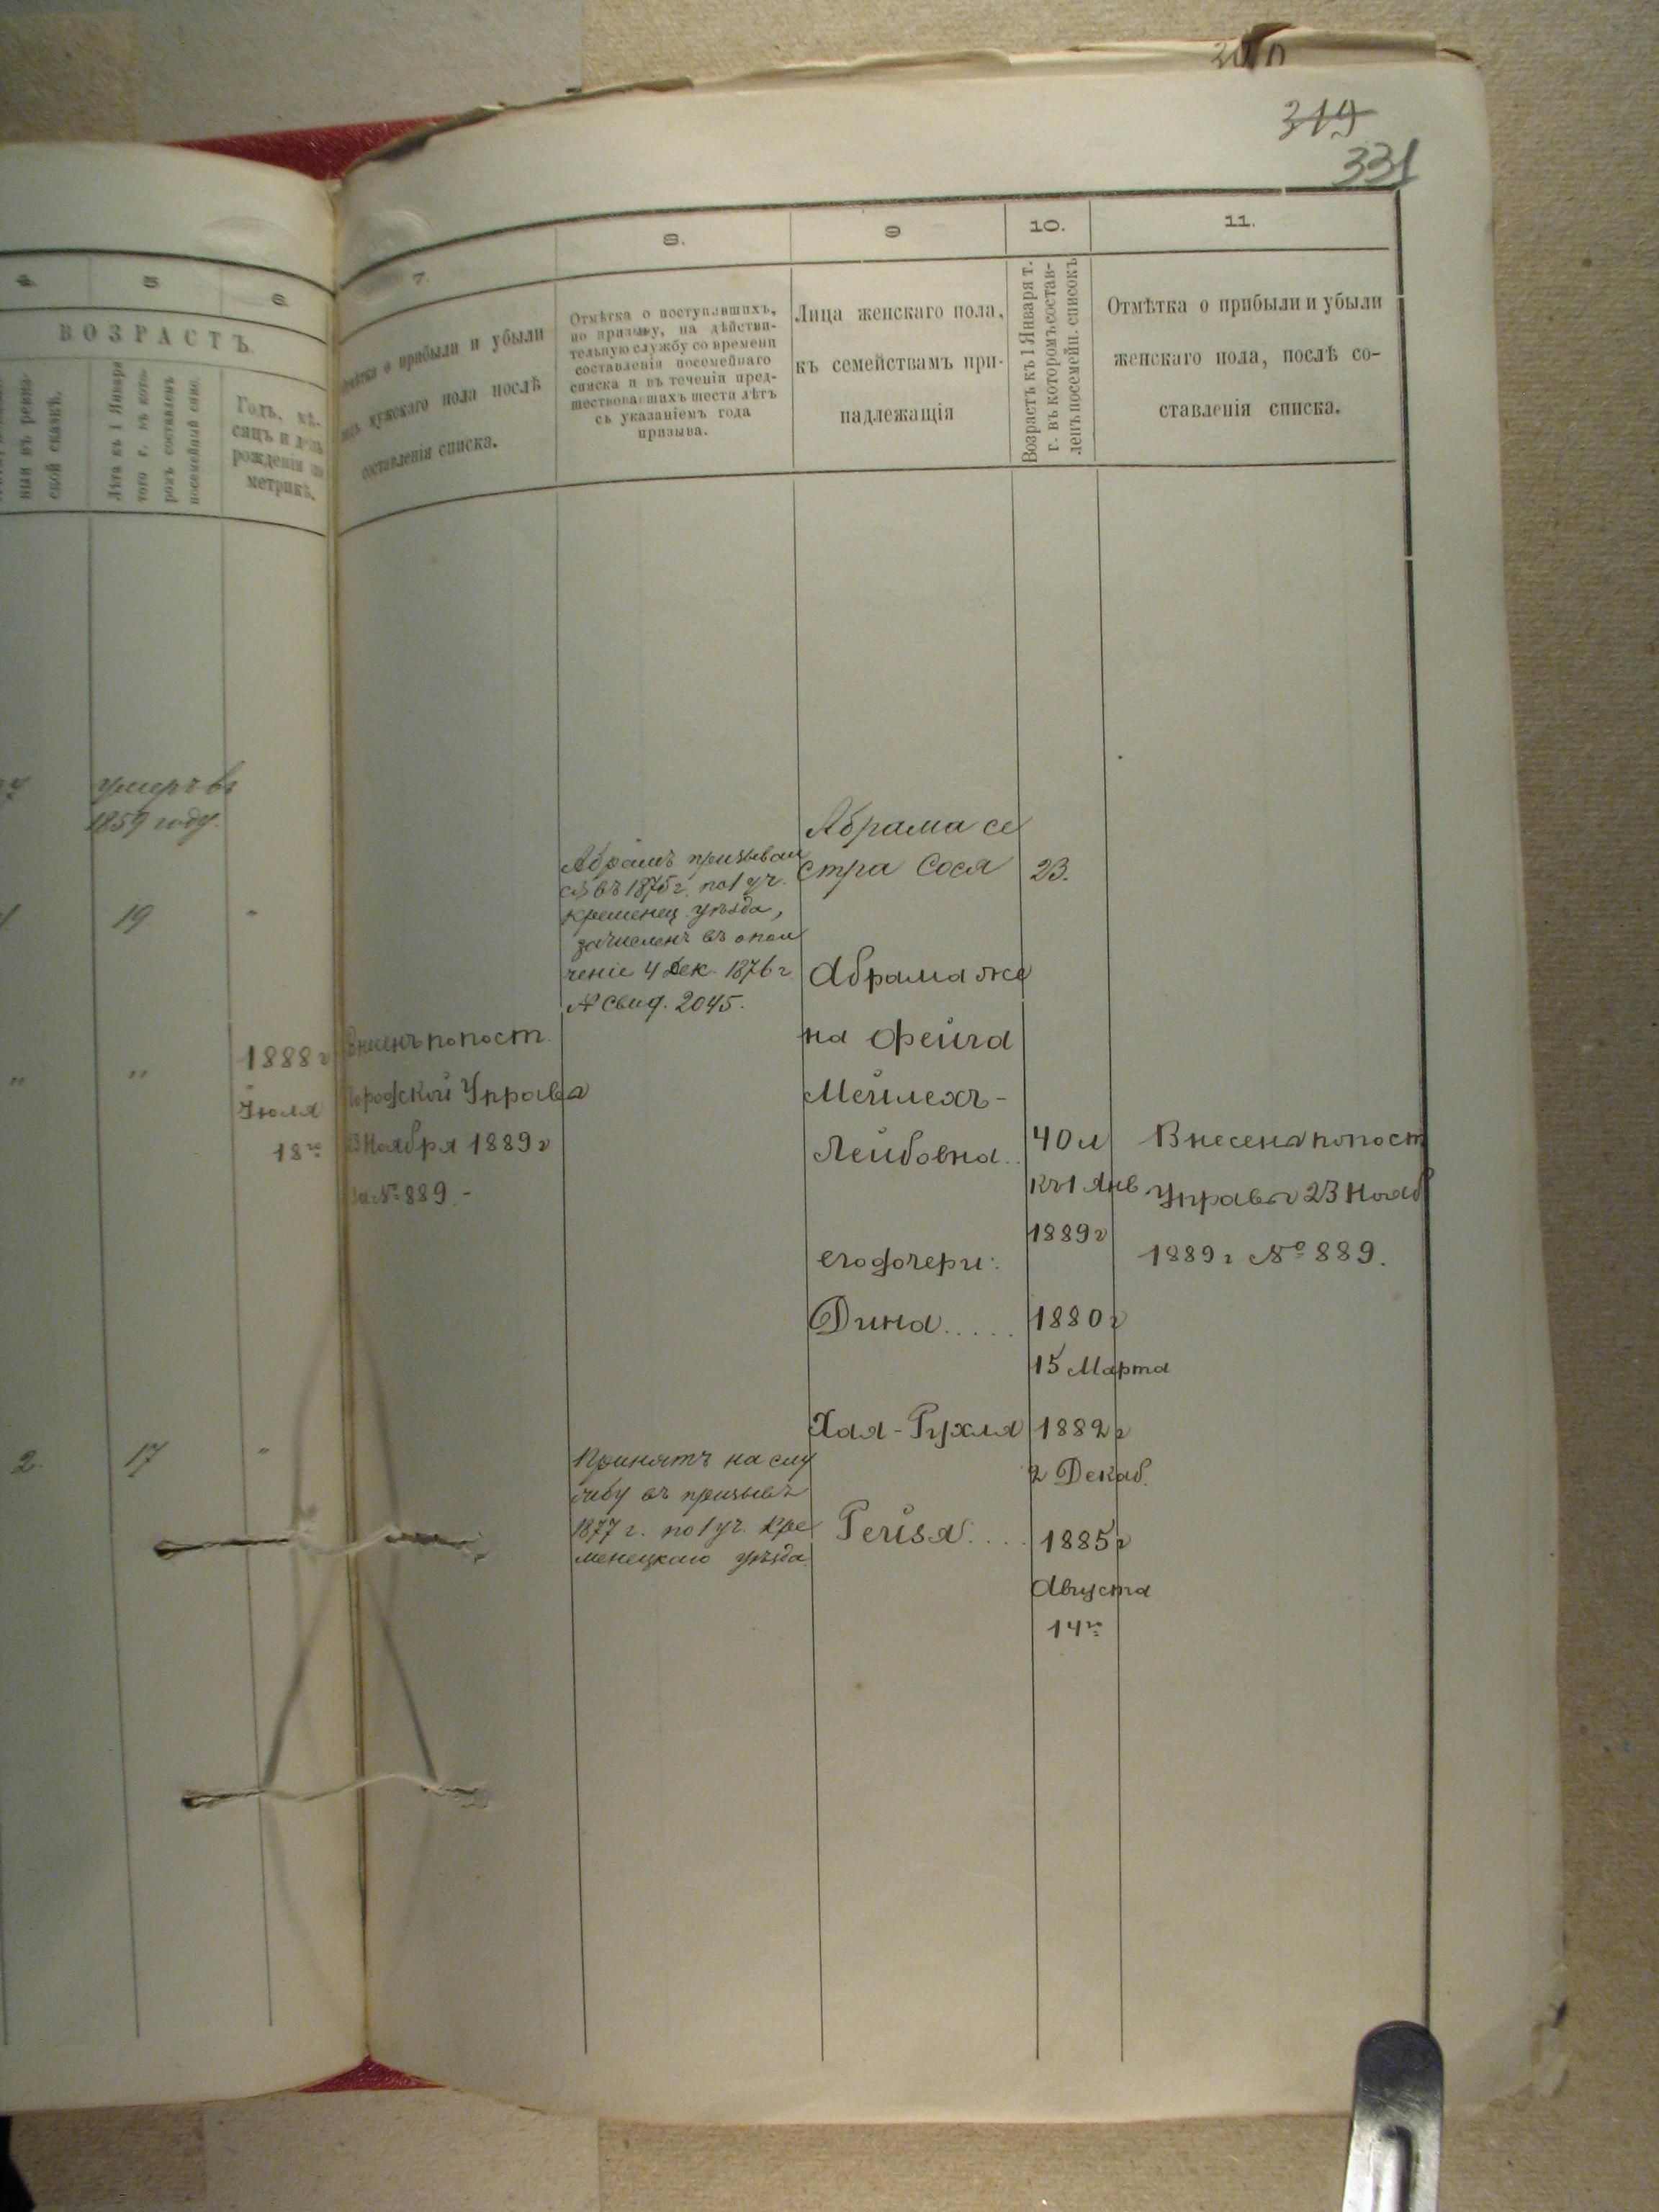 319
331
4.
5
6.
7.
8.
9
10.
11.
ВОЗРАСТЪ.
ской сказкѣ.
Лѣта къ 1 Января
того г. въ кото-
ромъ составленъ
посемейный спис.
Годъ, мѣ-
сяцъ и день
рожденія по
метрикѣ.
о прибыли и убыли
мужскаго пола послѣ
составленія списка.
Отмѣтка о поступившихъ,
по призыву, на дѣйстви-
тельную службу со времени
составленія посемейнаго
списка и въ теченіи пред-
шествовавшихъ шести лѣтъ
съ указаніемъ года
призыва.
Лица женскаго пола,
къ семействамъ при-
надлежащія
Возрастъ къ 1 Января т.
г. въ которомъ состав-
ленъ посемейн. списокъ
Отмѣтка о прибыли и убыли
женскаго пола, послѣ со-
ставленія списка.
умеръ въ
1859 году.
19
"
Абрамъ призывал
ся въ 1875 г. по 1 уч.
Кременец. уѣзда,
зачисленъ въ опол
ченіе 4 Дек. 1876 г.
№ Свид. 2045.
Абрама се
стра Сося
23.
"
"
1888 г
Іюля
18го
Внесенъ по пост.
Городской Управы
23 Ноября 1889 г
за № 889.-
Абрама же
на Фейга
Мейлехъ-
Лейбовна..
40 л
къ 1 Янв
1889 г
Внесена по пост
Управы 23 Нояб
1889 г № 889.
его дочери:
Дина.....
1880 г
15 Марта
Хая-Рухля
1882 г
2 Декаб.
Рейзя....
1885 г
Августа
14го
2.
17
"
Принятъ на слу
жбу въ призывъ
1877 г. по 1 уч. Кре
менецкаго уѣзда.